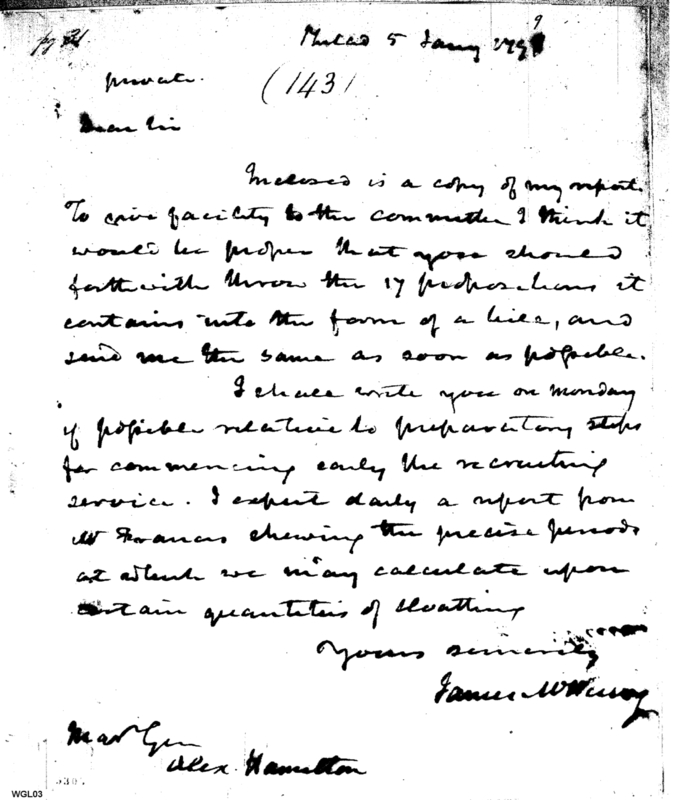 pg 31
Philad 5 Jany 1799
private.
(143)
Dear Sir
Inclosed is a copy of my report.
To give facility to the committee I think it
would be proper that you should
forthwith throw the 17 propositions it
contains into the form of a bill, and
send me the same as soon as possible.
I shall write you on monday
if possible relative to preparatory steps
for commencing early the recruiting
service. I expect daily a report from
Mr Francis shewing the precise periods
at which we may calculate upon
certain quantities of cloathing
Yours sincerely
James McHenry
Majr Gen
Alex. Hamilton
WGL03